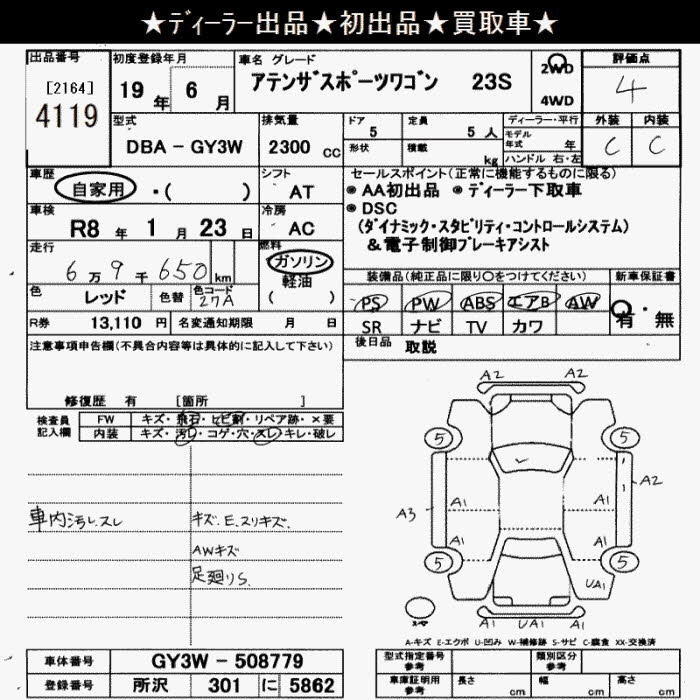 ★ディーラー出品★初出品★買取車★
出品番号 初度登録年月 車名 グレード 評価点
[2164] 19 年 6 月 アテンザスポーツワゴン 23S 2WD 4
4119 4WD
型式 排気量 ドア 定員 ディーラー・平行 外装 内装
DBA － GY3W 2300 CC 5 5 人 モデル 年式 年 C C
形状 積載 kg ハンドル 右・左
車歴 シフト セールスポイント(正常に機能するものに限る)
自家用 ・( ) AT ◉AA初出品 ◉ディーラー下取車
車検 冷房 ◉DSC
R8 年 1 月 23 日 AC (ダイナミック・スタビリティ・コントロールシステム)
走行 燃料 &電子制御ブレーキアシスト
6 万 9 千 650 km ガソリン 装備品(純正品に限り○をつけてください) 新車保証書
軽油
色 レッド 色替 色コード 27A ( ) PS PW ABS エアB AW 有・無
R券 13,110 円 名変通知期限 月 日 SR ナビ TV カワ
注意事項申告欄(不具合内容等は具体的に記入して下さい) 後日品 取説
修復歴 有 [箇所 ]
検査員 FW キズ・飛石・ヒビ割・リペア跡・×要
記入欄 内装 キズ・汚レ・コゲ・穴・スレ・キレ・破レ
A2
5 5
A2
A1 A1
A3
A1 A1
5 5
UA1
A1 A1
車内汚レ.スレ キズ.E.スリキズ.
AWキズ
足廻りS.
A-キズ E-エクボ U-凹み W-補修跡 S-サビ C-腐食 XX-交換済
車体番号 GY3W－508779 型式指定番号 参考 類別区分 参考
登録番号 所沢 301 に 5862 車庫証明用 参考 長さ cm 幅 cm 高さ cm